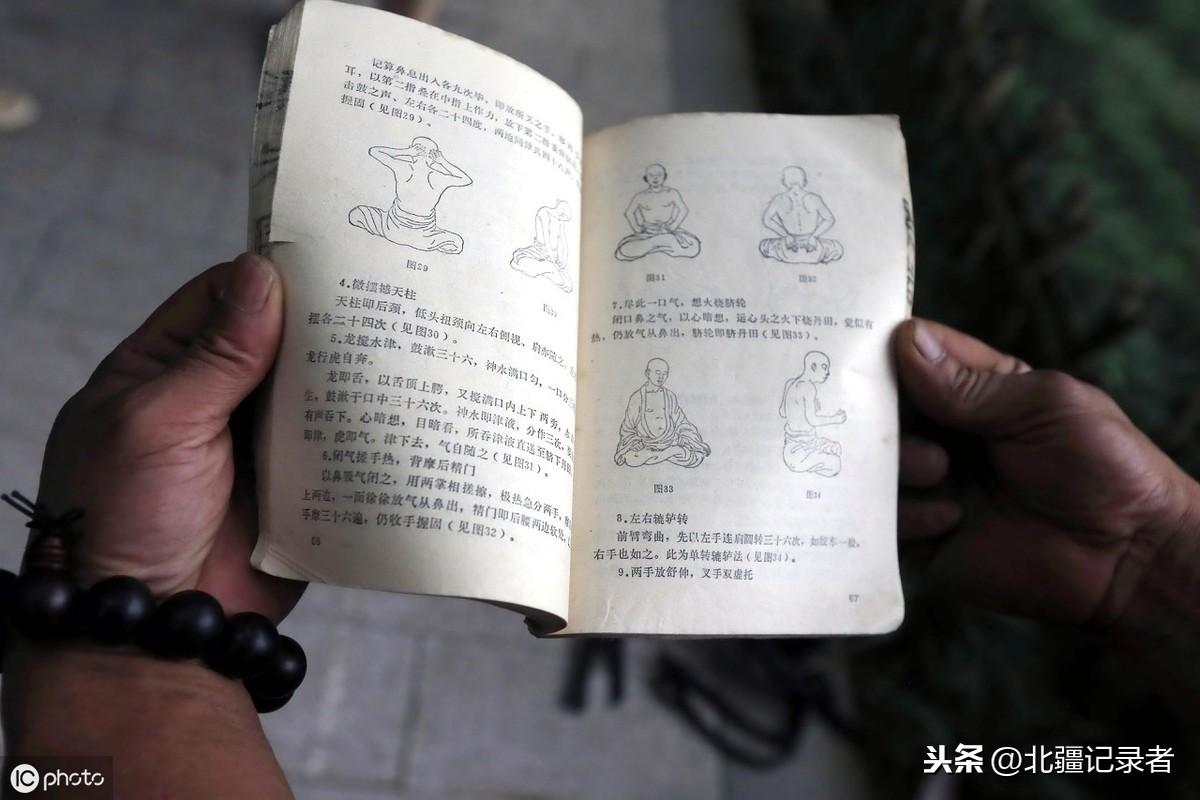 记算鼻息出入各九次毕，即放所叉之手，
耳，以第二指叠在中指上作力，放下第二指
击鼓之声，左右各二十四度，两
握固（见图29）。
图29
图30
4.微摆撼天柱
天柱即后颈，低头扭颈向左右侧视，肩亦随之
摆各二十四次（见图30）。
5.龙搅水津，鼓漱三十六，神水满口匀，一口分三
龙行虎自奔。
龙即舌，以舌顶上腭，又搅满口内上下两旁，
生，鼓漱于口中三十六次。神水即津液，分作三次，
有声吞下。心暗想，目暗看，所吞津液直送至脐下丹
即津，虎即气。津下去，气自随之（见图31）。
6.闭气搓手热，背摩后精门
以鼻吸气闭之，用两掌相搓擦，极热急分两手，
上两边，一面徐徐放气从鼻出，精门即后腰两边软处，
手摩三十六遍，仍收手握固（见图32）。
66
图31
图32
7.尽此一口气，想火烧脐轮
闭口鼻之气，以心暗想，运心头之火下烧丹田，觉似有
热，仍放气从鼻出，脐轮即脐丹田（见图33）。
图33
图34
8.左右辘轳转
前臂弯曲，先以左手连肩圆转三十六次，如绞车一般，
右手也如之。此为单转辘轳法（见图34）。
9.两手放舒伸，叉手双虚托
67
IC photo
头条 @北疆记录者